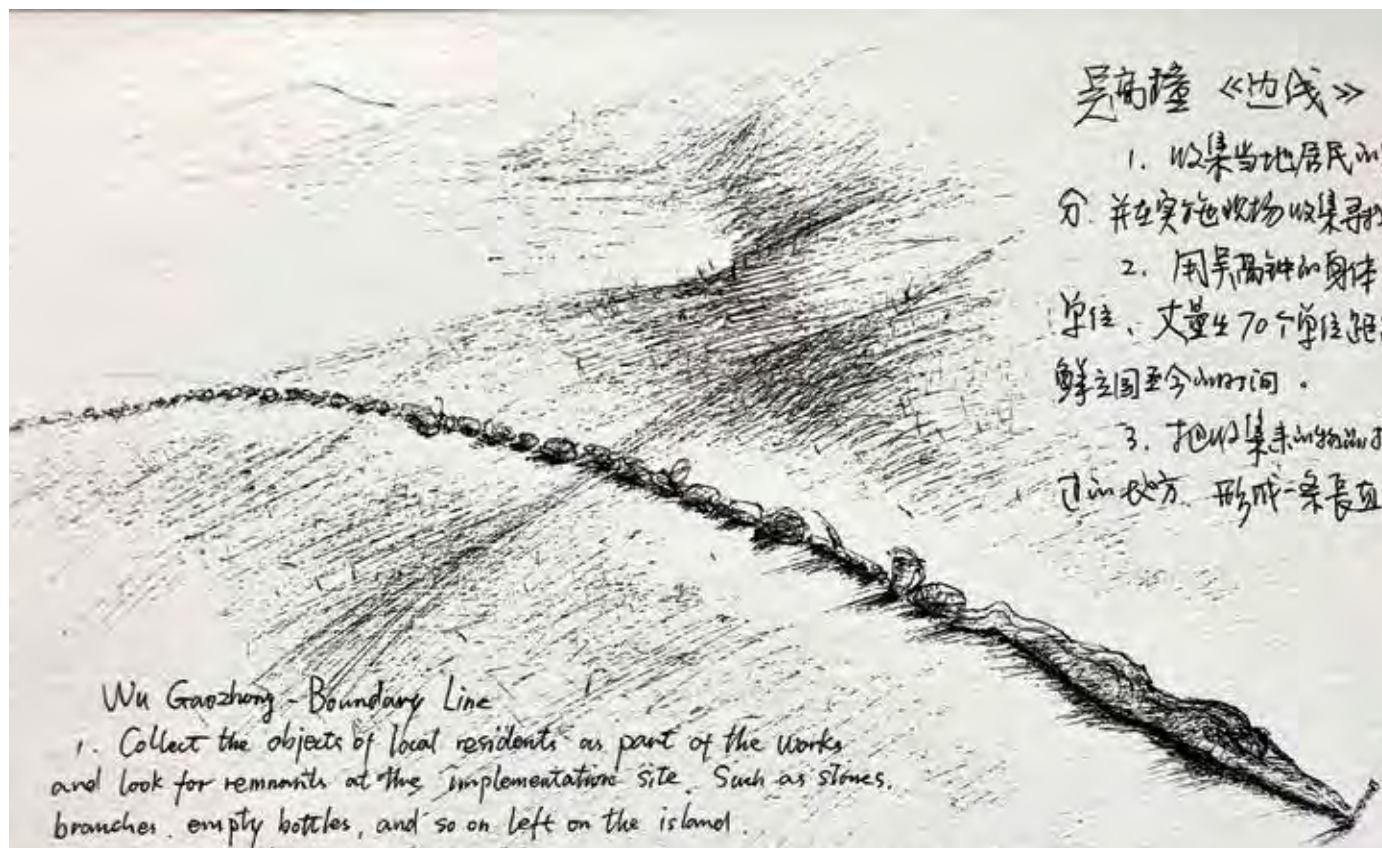 吴高钟 《边线》
1. 收集当地居民的
分. 并在实施现场收集寻找
2. 用吴高钟的身体
单位、丈量出70个单位距
鲜立国至今的时间。
3. 把收集来的物品
过的地方. 形成一条长直
Wu Gaozhong - Boundary Line
1. Collect the objects of local residents as part of the works
and look for remnants at the implementation site. Such as stones,
branches. empty bottles, and so on left on the island.